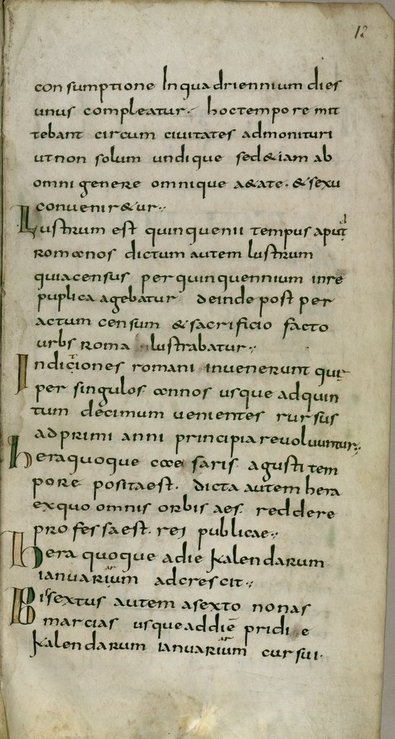 12
con sumptione In qua driennium dies
unus compleatur. hoc tempore mit
tebant circum civitates admonituri
ut non solum undique sed & iam ab
omni genere omnique a&ate. & sexu
convenir&ur.
Lustrum est quinquenii tempus aput
romanos dictum autem lustrum
quia census per quinquennium in re
puplica agebatur deinde post per
actum censum & sacrificio facto
urbs roma lustrabatur.
Indictiones romani invenerunt que
per singulos annos usque ad quin
tum decimum venientes rursus
ad primi anni principia revoluuntur.
hera quoque cae saris agusti tem
pore posita est. dicta autem hera
ex quo omnis orbis aes reddere
professa est. rei publicae.
hera quoque a die kalendarum
ianuarium adcrescit.
Bisextus autem a sexto nonas
marcias usque ad diē pridi e
kalendarum ianuarium cursui.